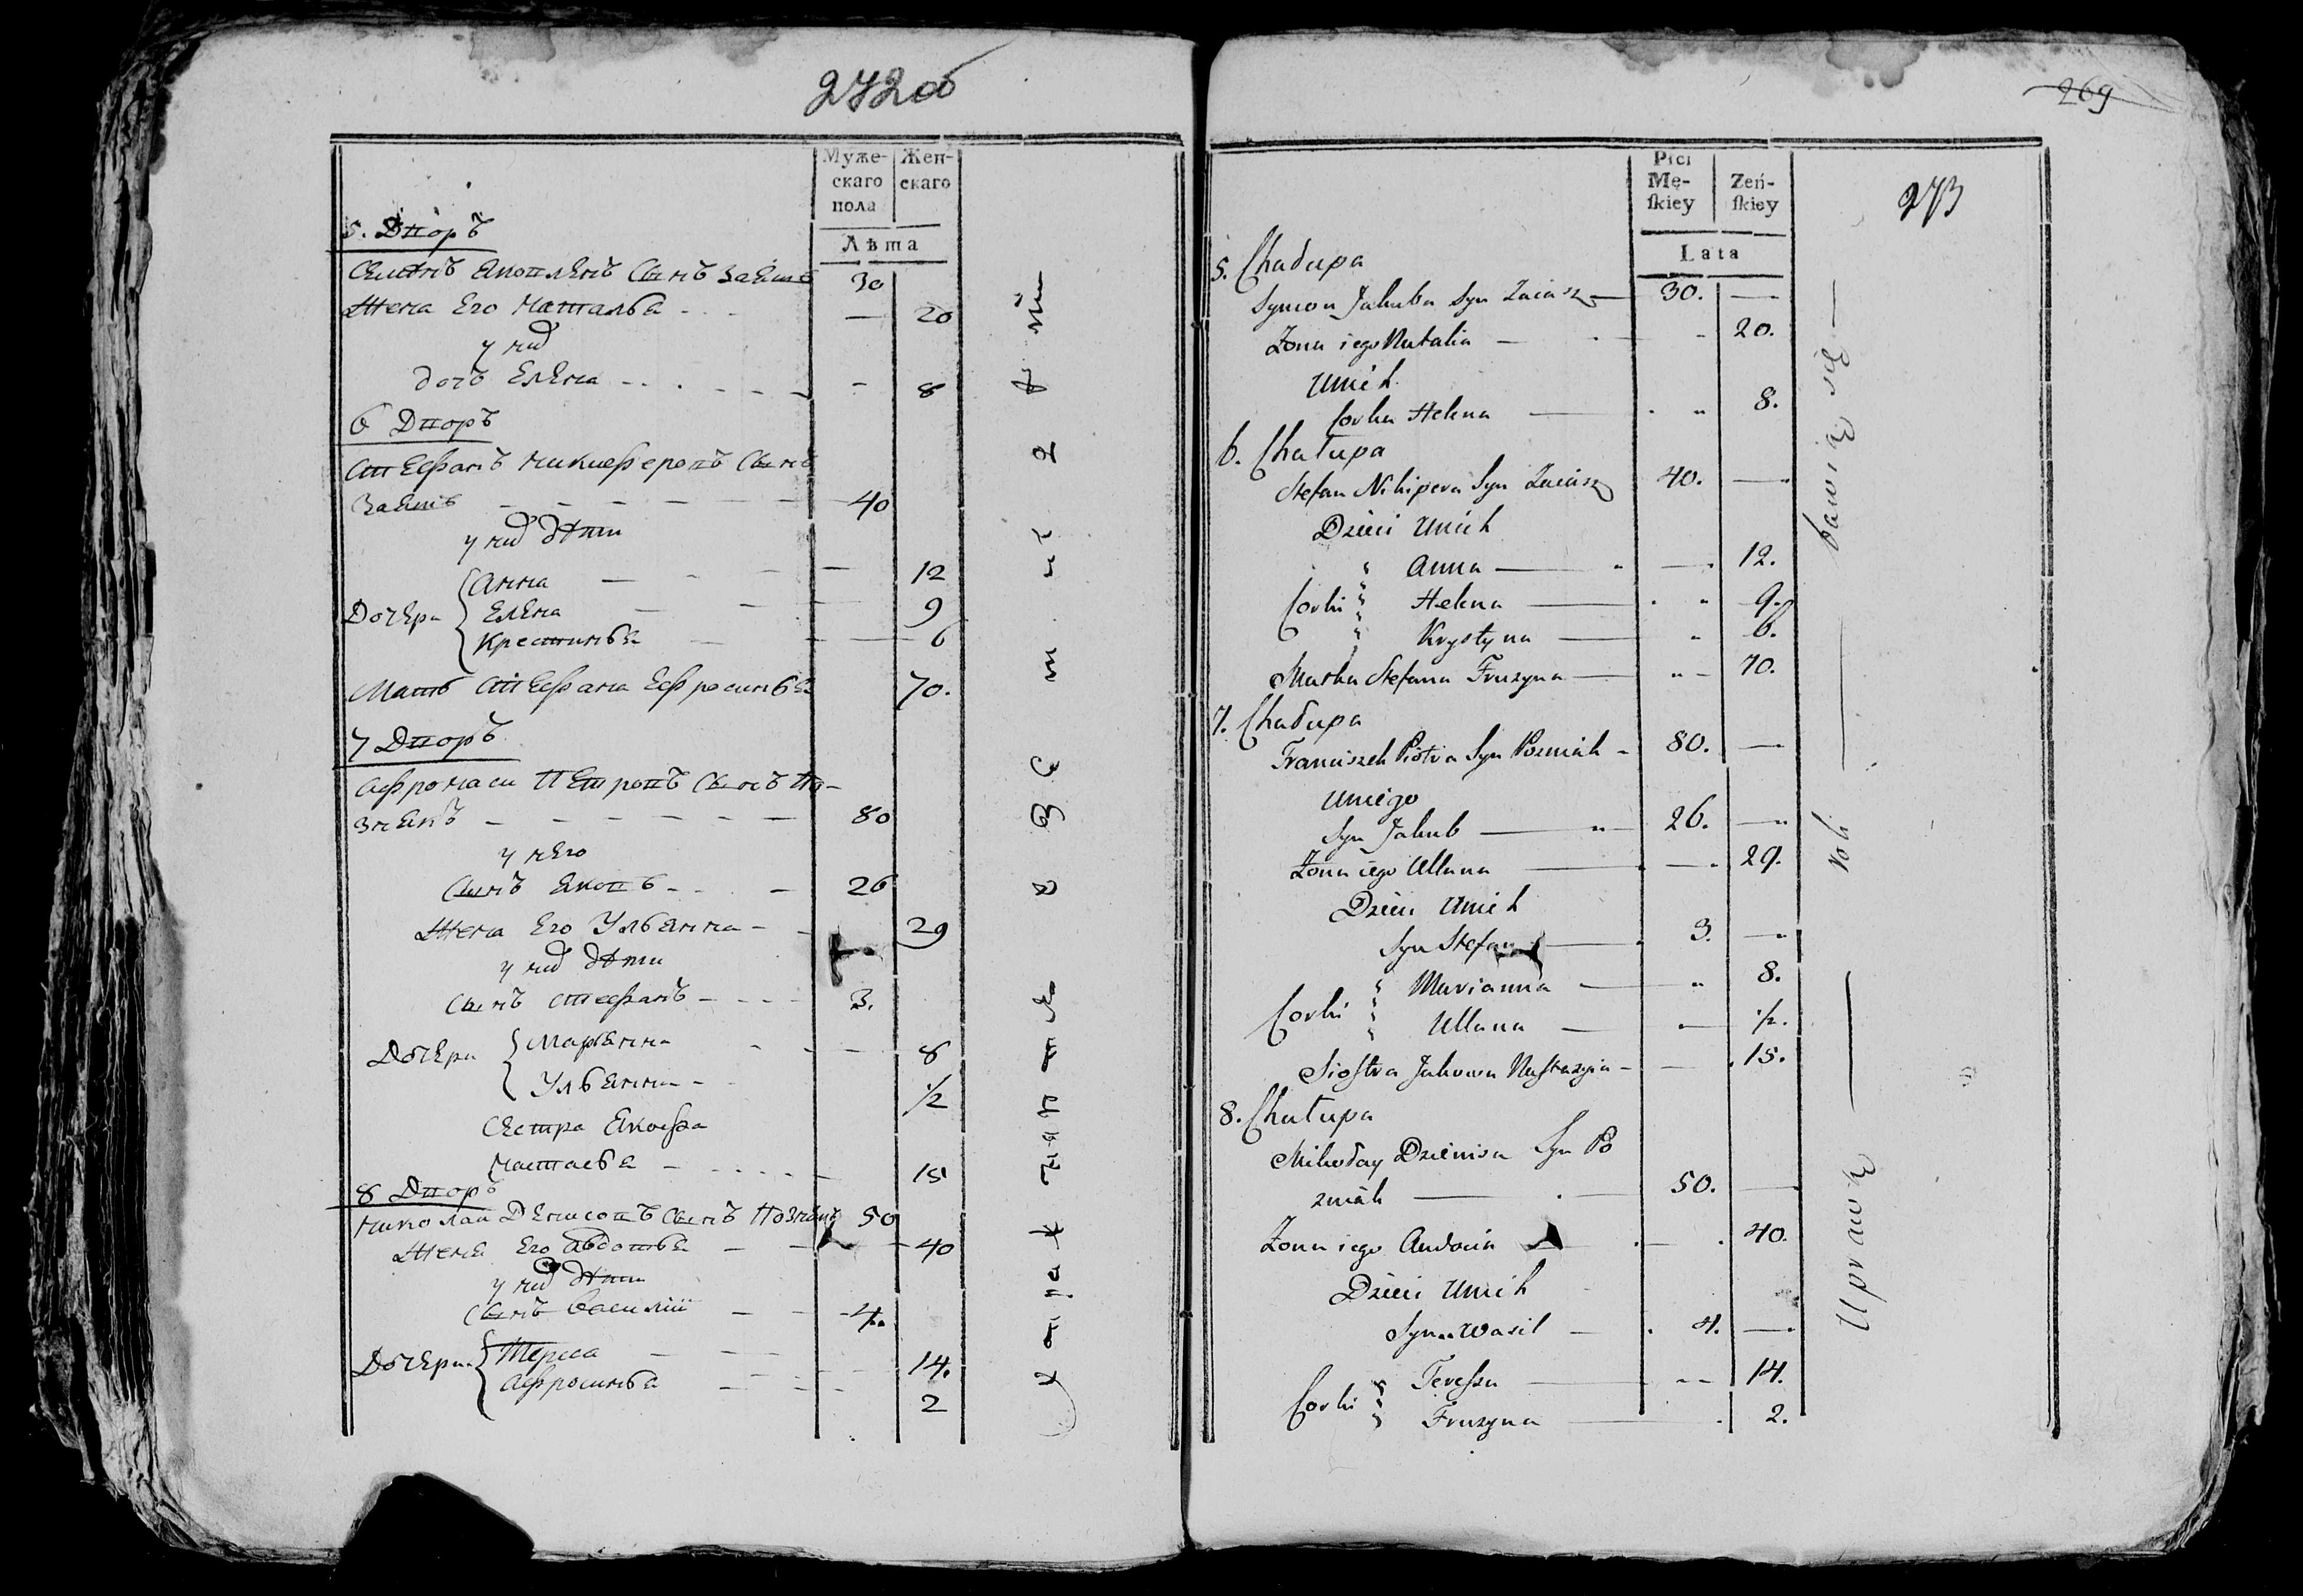 272об
Муже-
скаго
пола
Жен-
скаго
Лѣта
5. Дворъ
Семенъ Яковлевъ Сынъ Заяцъ 30
Жена Его Наталья - - - — 20
у них
дочь Елена - - - - - - 8
6 Дворъ
Стефанъ Никиферовъ Сынъ
Заяцъ — — — — — 40
у них дѣти
Анна — - — — 12
Дочери Елена — - — 9
Крестинья — — — 6
Мать Стефана Ефросинья 70.
7 Дворъ
Афронаси Петровъ Сынъ По-
знякъ — — — — — — 80
у него
Сынъ Яковъ - - - 26
Жена Его Ульянна - - 29
у них дѣти
Сынъ Стефанъ - - - - 3.
Дочери Марьянна - - — 8
Ульянна - ½
Сестра Якова
Настасья — - - - - 15
8 Дворъ
Николай Денисовъ Сынъ Познякъ 50
Жена Его Авдотья — — 40
у них дѣти
Сынъ Василий — — 4.
Дочери Тереса — - — 14.
Афросинья — - - 2
269
273
Płci
Mę-
ſkiey
Zeń-
ſkiey
Lata
5. Chałupa
Symon Jakuba Syn Zaiasz — 30. —
Zona iego Natalia — - - 20.
Unich
Corka Helena — 8.
6. Chałupa
Stefan Nikipera Syn Zaiasz 40. —
Dzieci Unich
Anna — — 12.
Corki Helena — 9.
Krystyna — 6.
Matka Stefana Fruzyna — 70.
7. Chałupa
Franciszek Piotra Syn Pozniak - 80. —
Uniego
Syn Jakub — 26. —
Zona iego Ullana — — 29.
Dzieci Unich
Syn Stefan — 3. —
Corki Marianna — 8.
Ullana — — ½.
Siostra Jakowa Nastazyia - — 15.
8. Chałupa
Mikołay Dzienisa Syn Po
zniak — 50. —
Zona iego Audocia — — 40.
Dzieci Unich
Syn Wasil — 4. —
Corki Teressa — - - 14.
Fruzyna — 2.
Uprawą — Roli — bawią się —